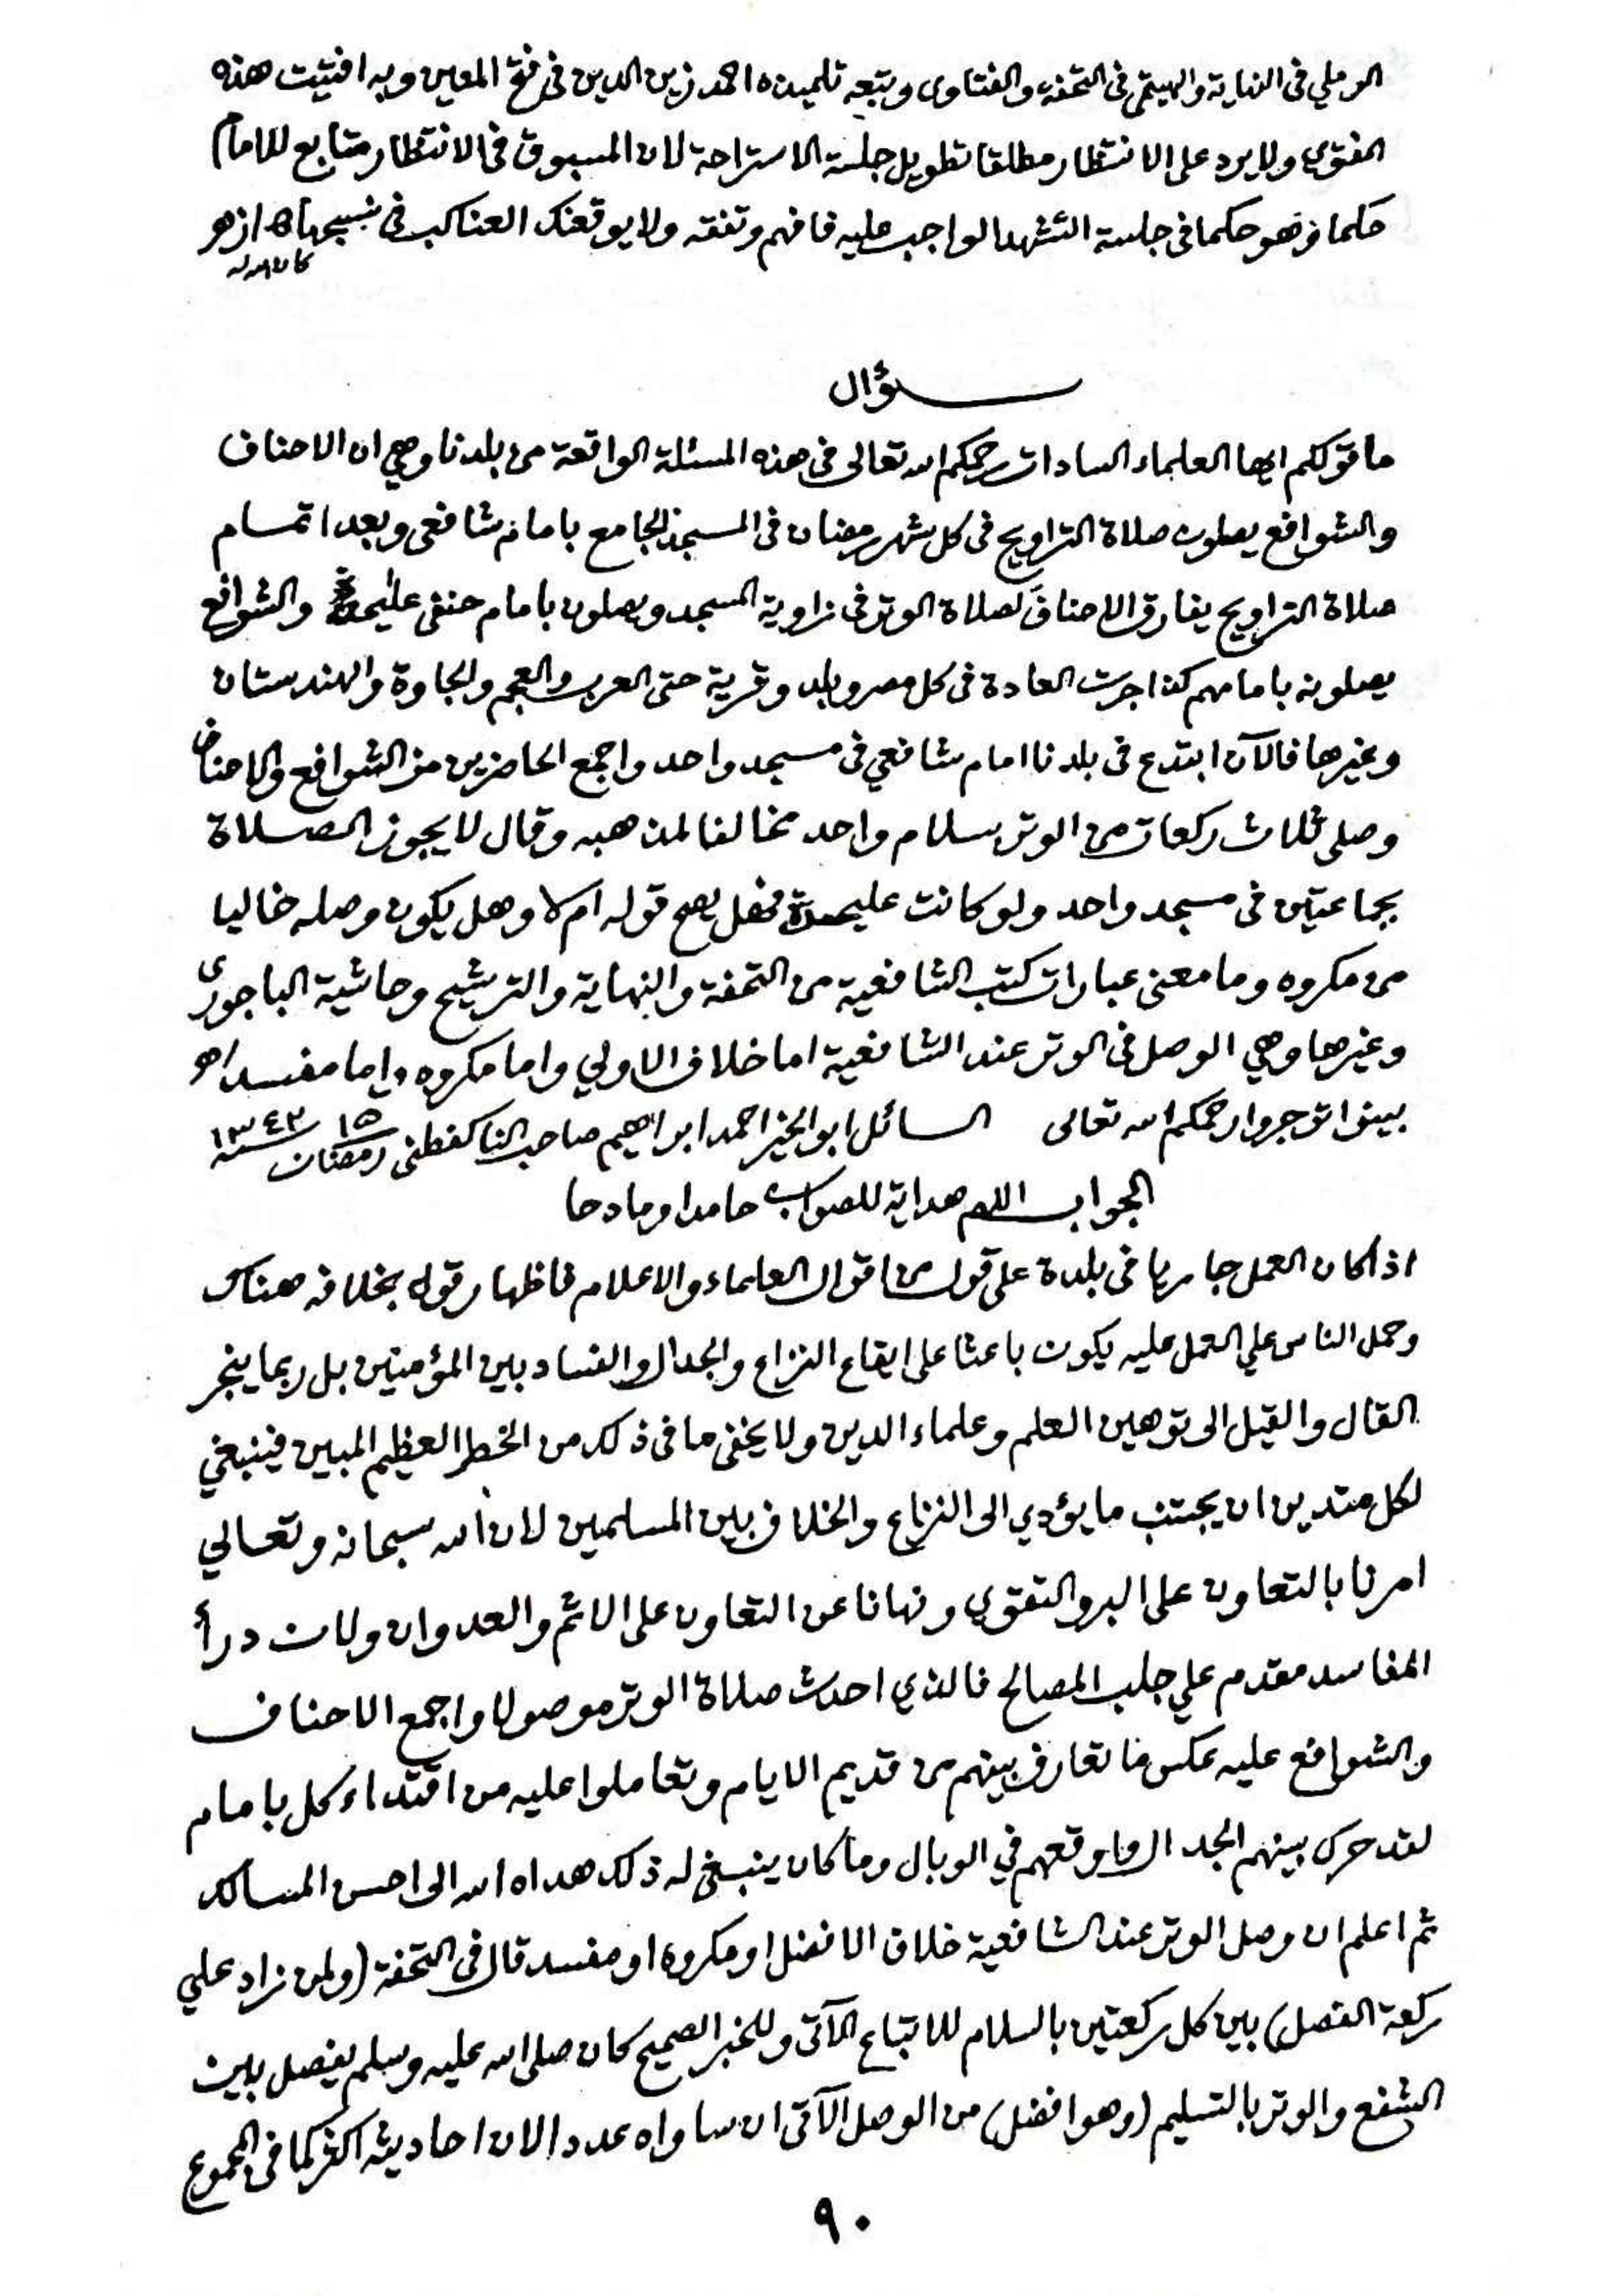 الرملي في النهاية والهيتمي في التحفة والفتاوى وتبعه تلميذه احمد زين الدين في فتح المعين وبه افتيت هذه
الفتوى ولا يرد على الانتظار مطلقا تطويل جلسة الاستراحة لان المسبوق في الانتظار متابع للامام
حكما وهو حكما في جلسة التشهد الواجب عليه فافهم وتفقه ولا يوقعنك العناكب في نسيجها اه ازهر
كان الله له
سؤال
ما قولكم ايها العلماء السادات رحمكم الله تعالى في هذه المسئلة الواقعة من بلدنا وهي ان الاحناف
والشوافع يصلون صلاة التراويح في كل شهر رمضان في المسجد الجامع بامام شافعي وبعد اتمام
صلاة التراويح يفارق الاحناف لصلاة الوتر في زاوية المسجد ويصلون بامام حنفي عليحدة والشوافع
يصلونه بامامهم كذا جرت العادة في كل مصر وبلد وقرية حتى العرب والعجم والجاوة والهندستان
وغيرها فالآن ابتدع في بلدنا امام شافعي في مسجد واحد واجمع الحاضرين من الشوافع والاحناف
وصلى ثلاث ركعات من الوتر بسلام واحد مخالفا لمذهبه وقال لا يجوز الصلاة
بجماعتين في مسجد واحد ولو كانت عليحدة فهل يصح قوله ام لا وهل يكون وصله خاليا
من مكروه وما معنى عبارات كتب الشافعية من التحفة والنهاية والترشيح وحاشية الباجورى
وغيرها وهي الوصل في الوتر عند الشافعية اما خلاف الاولي واما مكروه واما مفسد اهـ
بينوا توجروا رحمكم الله تعالى السائل ابو الخير احمد ابراهيم صاحب الناكفطني ١٥ رمضان سنة ١٣٤٣
الجواب اللهم هداية للصواب حامدا ومادحا
اذا كان العمل جاريا في بلدة على قول من اقوال العلماء والاعلام فاظهار قول بخلافه هناك
وحمل الناس علي العمل عليه يكون باعثا على ايقاع النزاع والجدال والفساد بين المؤمنين بل ربما ينجر
القال والقيل الى توهين العلم وعلماء الدين ولا يخفى ما في ذلك من الخطر العظيم المبين فينبغي
لكل متدين ان يجتنب ما يؤدي الى النزاع والخلاف بين المسلمين لان الله سبحانه وتعالي
امرنا بالتعاون على البر والتقوي ونهانا عن التعاون على الاثم والعدوان ولان درأ
المفاسد مقدم علي جلب المصالح فالذي احدث صلاة الوتر موصولا واجمع الاحناف
والشوافع عليه عكس ما تعارف بينهم من قديم الايام وتعاملوا عليه من اقتداء كل بامام
لقد حرك بينهم الجدال واوقعهم في الوبال وما كان ينبغي له ذلك هداه الله الى احسن المسالك
ثم اعلم ان وصل الوتر عند الشافعية خلاف الافضل او مكروه او مفسد قال في التحفة (ولمن زاد علي
ركعة الفصل) بين كل ركعتين بالسلام للاتباع الآتي وللخبر الصحيح كان صلى الله عليه وسلم يفصل بين
الشفع والوتر بالتسليم (وهو افضل) من الوصل الآتي ان ساواه عددا لان احاديثه اكثر كما في المجموع
٩٠